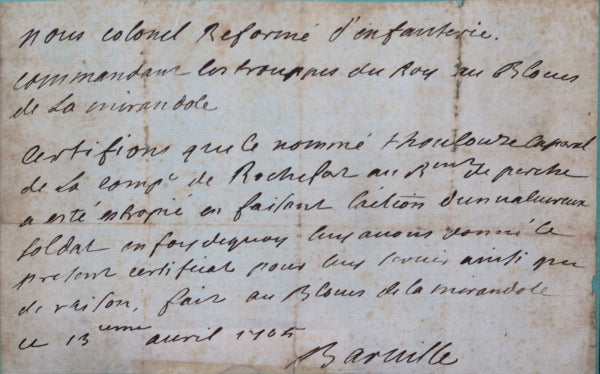 nous colonel Reformé d'infanterie.
commandant les trouppes du Roy au Blocus
de La mirandole
certifions que le nommé thoulouze caporal
de La compe de Rochefort au Rment de perche
a esté estropié en faisant l'action d'un valureux
soldat en foy de quoy luy avons donné le
present certificat pour luy servir ainsi que
de raison, fait au Blocus de la mirandole
ce 13eme avril 1705
Barville